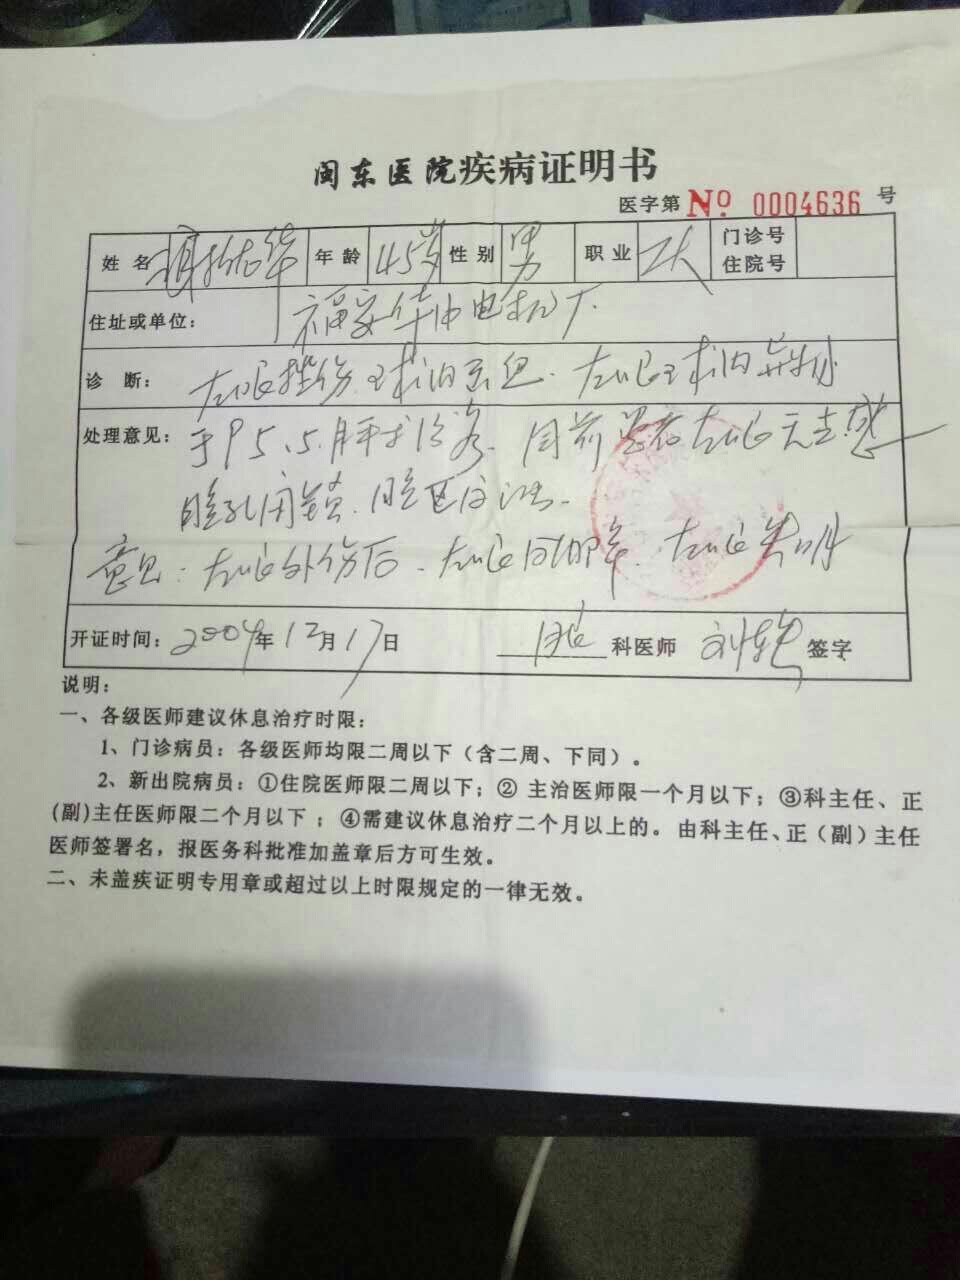 闽东医院疾病证明书
医字第 No. 0004636 号
姓名 华 年龄 45岁 性别 男 职业 工人 门诊号 住院号
住址或单位: 福安华电机厂
诊 断: 左眼挫伤 球内 左眼球内异物
处理意见: 于95.5.月手术治 目前患者左眼无光感
瞳孔闭锁
意见: 左眼外伤后 左眼 左眼失明
开证时间: 2004年12月17日 眼 科医师 刘 签字
说明:
一、各级医师建议休息治疗时限:
1、门诊病员: 各级医师均限二周以下(含二周、下同)。
2、新出院病员: ①住院医师限二周以下; ② 主治医师限一个月以下; ③科主任、正
(副)主任医师限二个月以下 ; ④需建议休息治疗二个月以上的。由科主任、正(副)主任
医师签署名, 报医务科批准加盖章后方可生效。
二、未盖疾证明专用章或超过以上时限规定的一律无效。